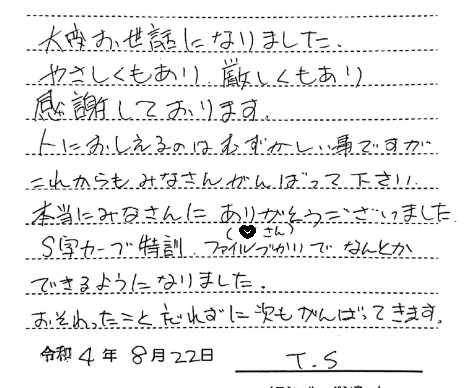 大変お世話になりました.
やさしくもあり 厳しくもあり
感謝しております.
人におしえるのはむずかしい事ですが
これからもみなさんがんばって下さい!!
本当にみなさんに ありがとうございました
(♥さん)
S字カーブ特訓. ファイルづかいで なんとか
できるようになりました.
おそわったこと忘れずに次もがんばってきます.
令和 4 年 8 月 22 日 T.S